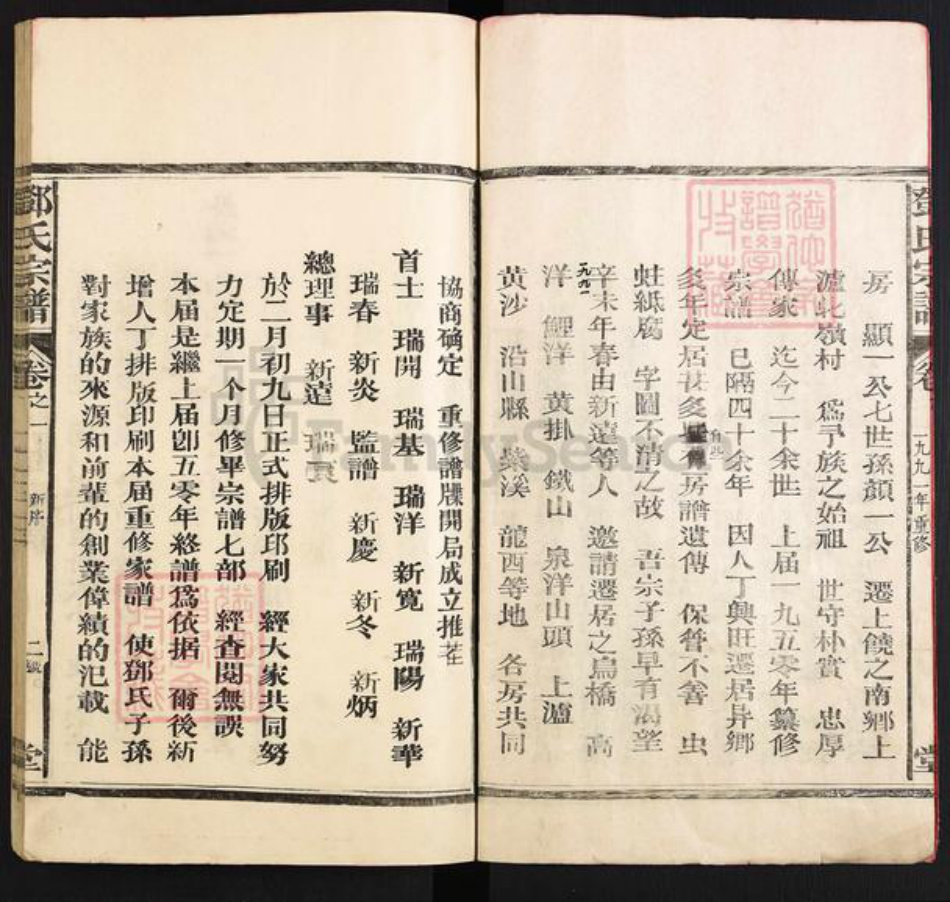 鄧氏宗譜 卷 一九九一年重修 堂
房 顯一公七世孫顏一公 遷上饒之南鄉上
瀘北嶺村 爲予族之始祖 世守朴實 忠厚
傳家 迄今二十余世 上届一九五零年纂修
宗譜 已隔四十余年 因人丁興旺遷居异鄉
多年定居 有些 房譜遺傳 保管不善 虫
蛀紙腐 字圖不清之故 吾宗子孫早有渴望
一九九一
辛未年春由新遠等人 邀請遷居之烏橋 高
洋 鯉洋 黄掛 鐵山 泉洋山頭 上瀘
黄沙 沿山縣 紫溪 龍西等地 各房共同
協商确定 重修譜牒開局成立推荏
首士 瑞開 瑞基 瑞洋 新寬 瑞陽 新華
瑞春 新炎 監譜 新慶 新冬 新炳
總理事 新達
於二月初九日正式排版印刷 經大家共同努
力定期一个月修畢宗譜七部 經查閱無誤
本届是繼上届卽五零年終譜爲依据 爾後新
增人丁排版印刷本届重修家譜 使鄧氏子孫
對家族的來源和前輩的創業偉績的氾載 能
鄧氏宗譜 卷之一 新序 二 堂
FamilySearch